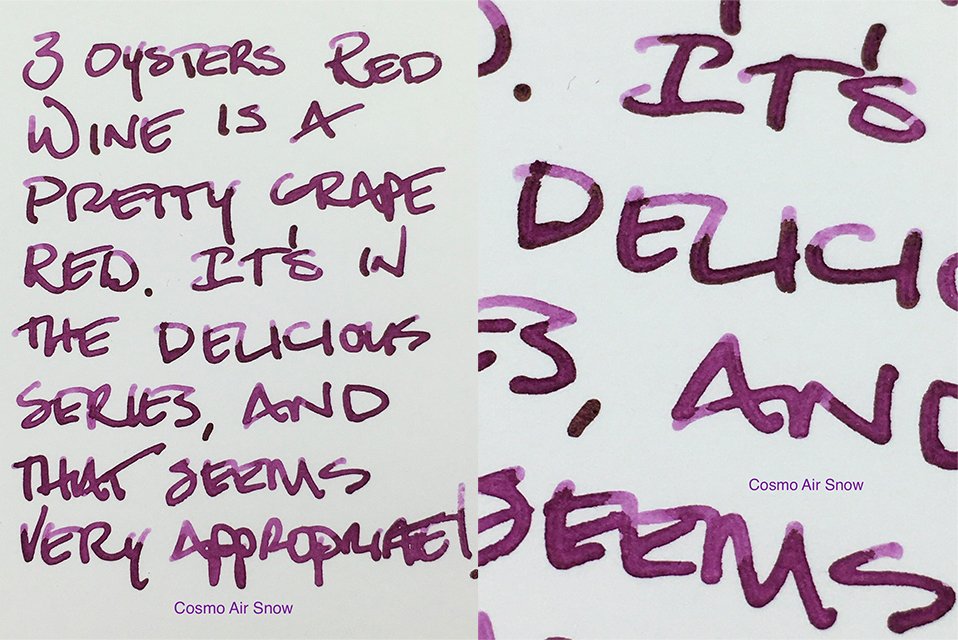 3 OYSTERS RED
WINE IS A
PRETTY GRAPE
RED. IT'S IN
THE DELICIOUS
SERIES, AND
THAT SEEMS
VERY APPROPRIATE!
Cosmo Air Snow
IT'S
DELICI
ES, AND
Cosmo Air Snow
SEEMS